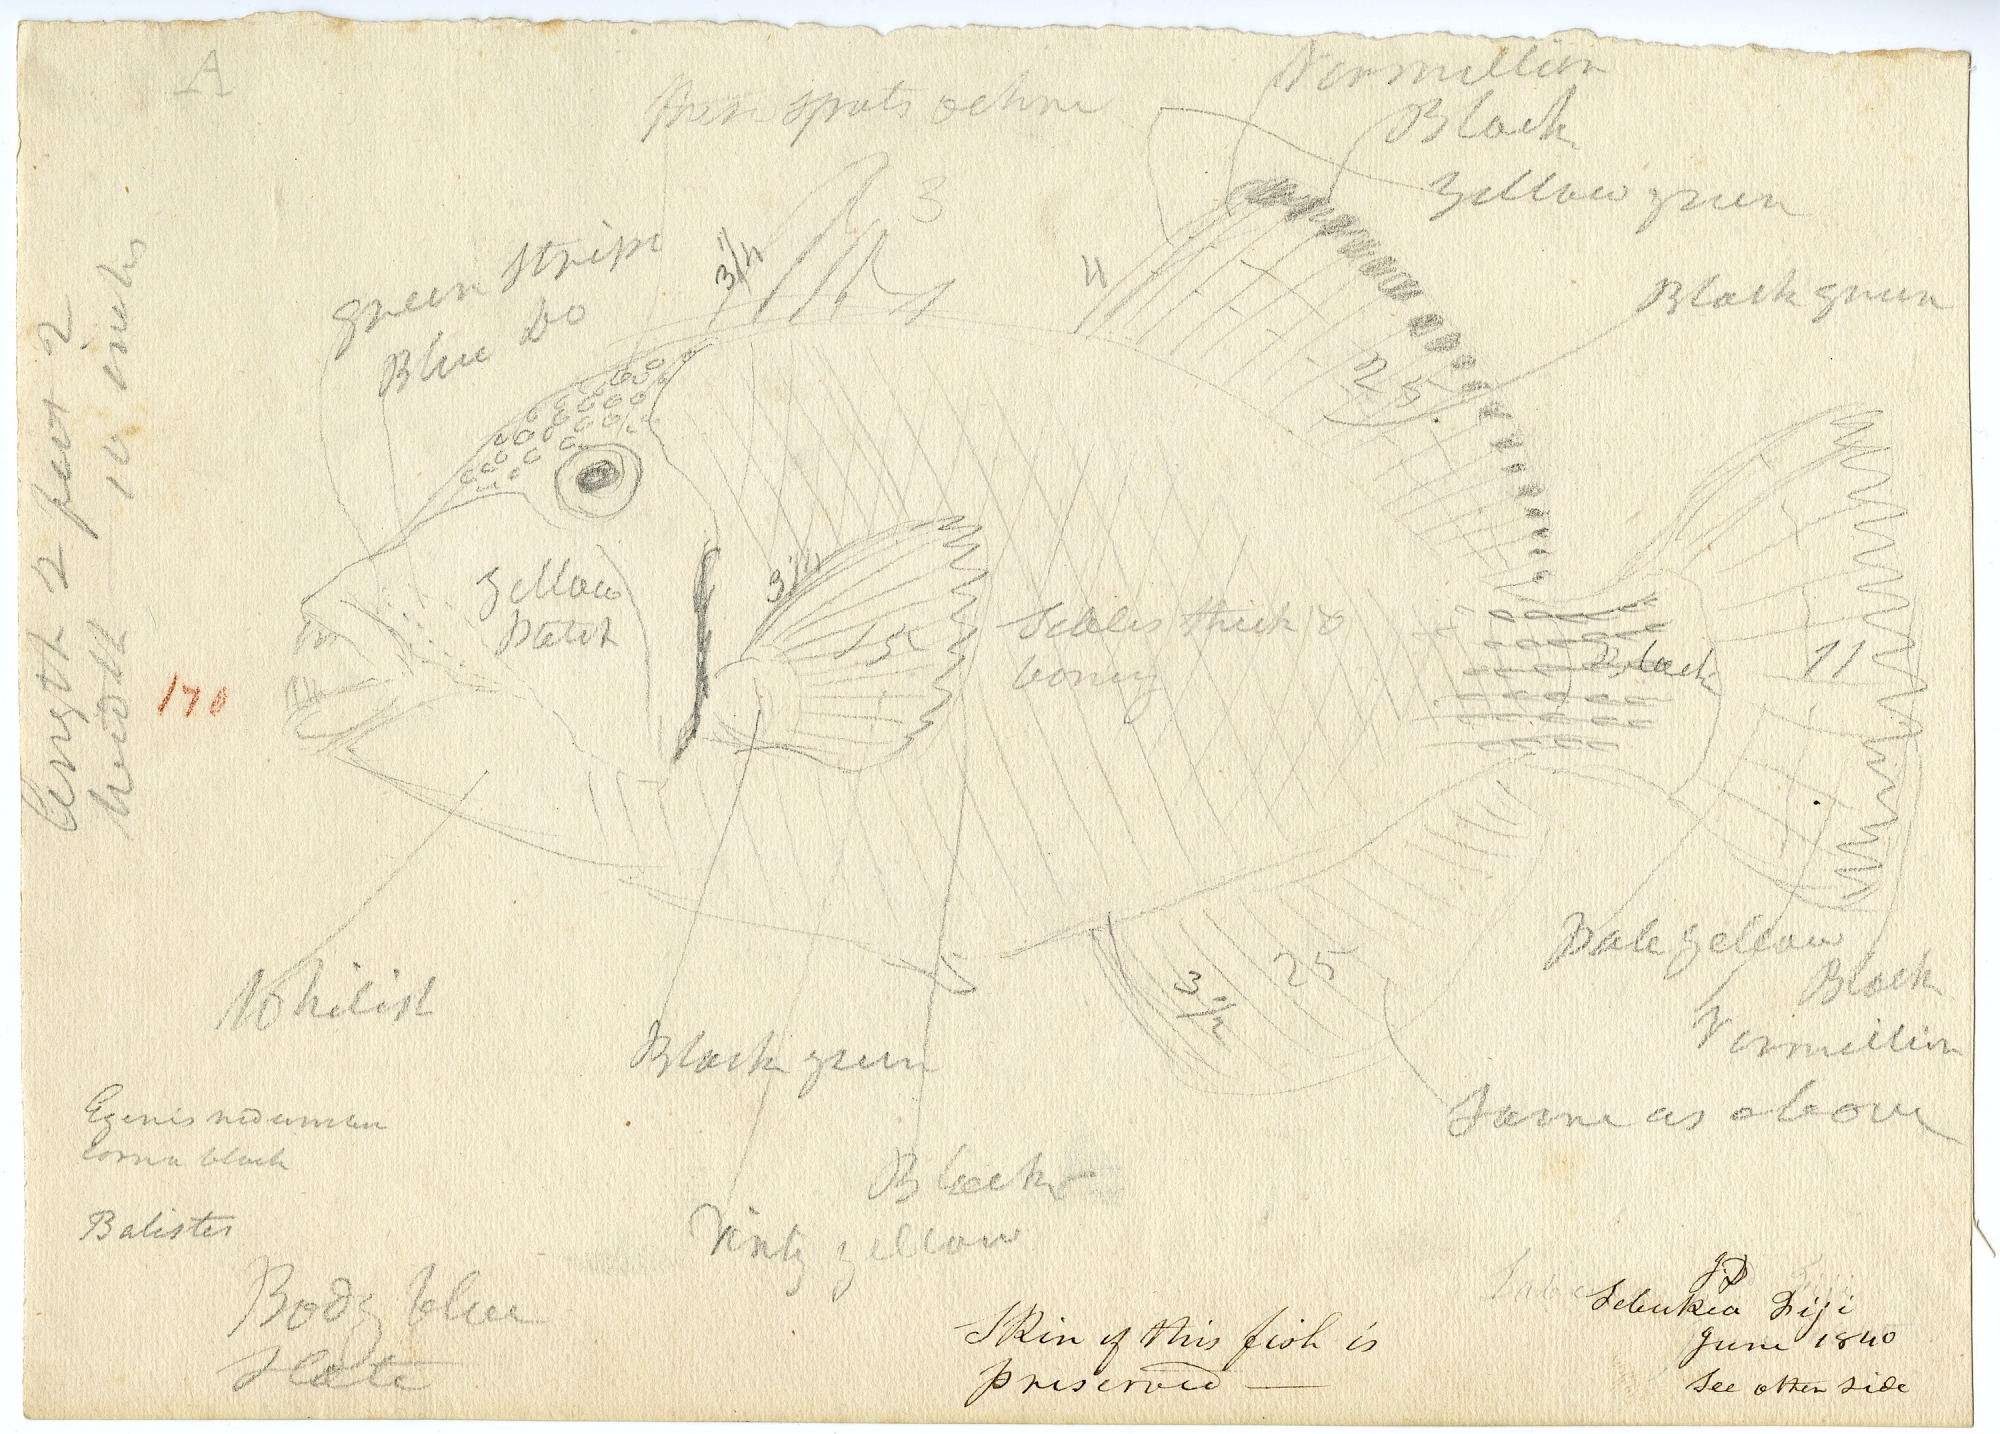 A
These spots ochre
Vermillion
Black
Yellow green
Black green
green stripe
Blue Do
3 1/4
3
4
25
Length 2 feet 2
width 10 inches
170
Yellow
Patch
3 1/4
15
Scales thick &
boney
Black
11
Whitish
3 1/2
25
Pale yellow
Black
Vermillion
Same as above
Black green
Black
yellow
Egenis nedumcen
black
Balistes
Body blue
Slate
Skin of this fish is
preserved —
JD
Sebukea Fiji
June 1840
See other side